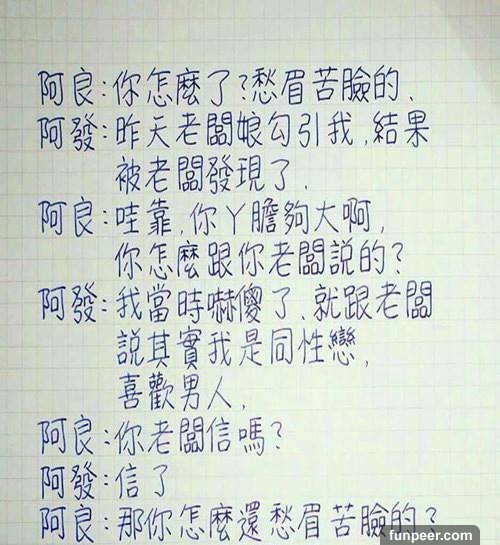 阿良:你怎麼了?愁眉苦臉的、
阿發:昨天老闆娘勾引我,結果
被老闆發現了、
阿良:哇靠,你丫膽夠大啊,
你怎麼跟你老闆說的?
阿發:我當時嚇傻了、就跟老闆
說其實我是同性戀,
喜歡男人,
阿良:你老闆信嗎?
阿發:信了
阿良:那你怎麼還愁眉苦臉的?
funpeer.com